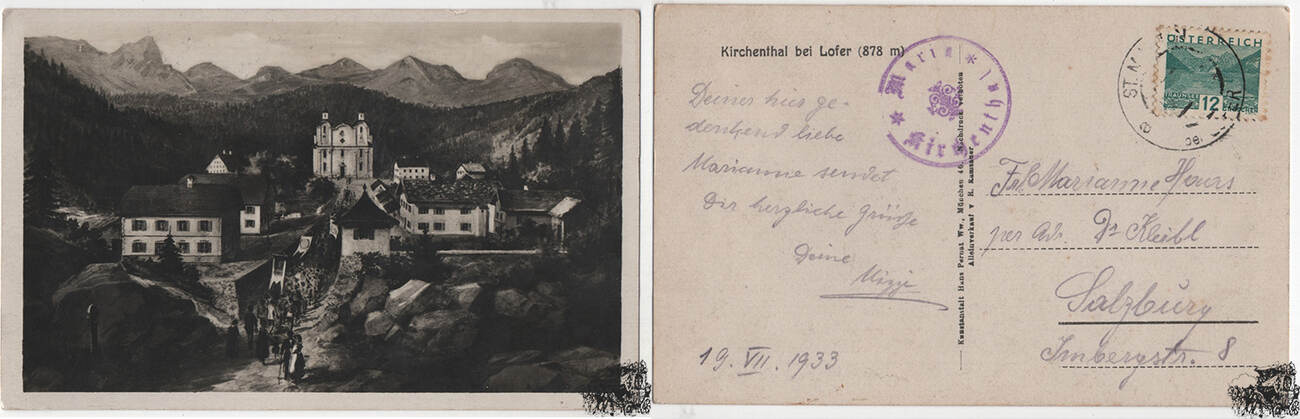 Kirchenthal bei Lofer (878 m)
Deiner hier ge-
denkend liebe
Marianne sendet
Dir herzliche Grüße
Deine
Mizzi
19. VII. 1933
* Maria *
Kirchenthal
Kunstanstalt Hans Pernat Ww., München 46, Nachdruck verboten
Alleinverkauf v R. Ramsauer
ÖSTERREICH
12
GROSCHEN
ST. M
bei
Frl. Marianne
per Adr. Dr Kleibl
Salzburg
Imbergstr. 8